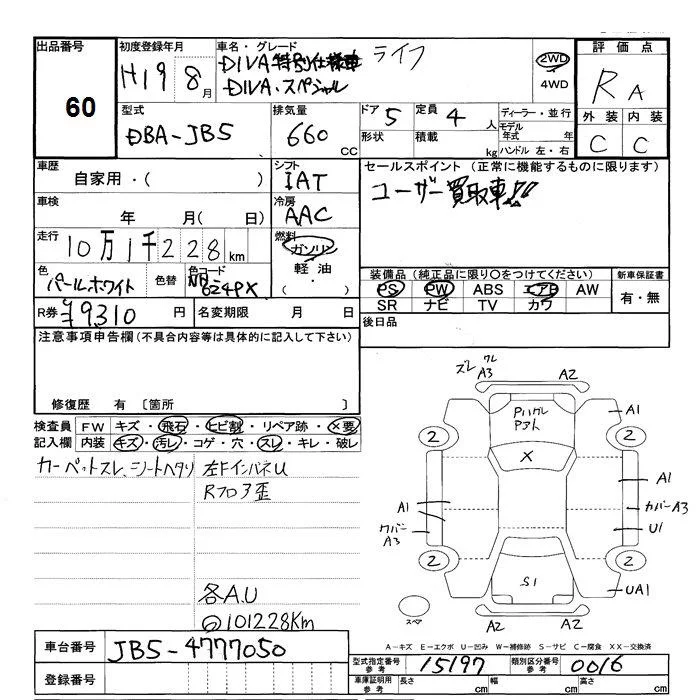 出品番号
60
初度登録年月
H19 8月
車名・グレード
DIVA特別仕様車 ライフ
DIVA・スペシャル
2WD
4WD
評価点
R A
型式
DBA-JB5
排気量
660 CC
ドア 5
定員 4 人
形状
積載 kg
ディーラー・並行
モデル年式 年
ハンドル 左・右
外装 内装
C C
車歴
自家用・( )
シフト
IAT
セールスポイント (正常に機能するものに限ります)
ユーザー買取車!!
車検
年 月( 日)
冷房
AAC
走行
10万1千228km
燃料
ガソリン
軽油
・( )
色
パールホワイト
色替
色コード
NB
624PX
装備品 (純正品に限り○をつけてください)
新車保証書
PS PW ABS エアB AW
SR ナビ TV カワ
有・無
R券 ¥9310 円
名変期限 月 日
後日品
注意事項申告欄(不具合内容等は具体的に記入して下さい)
修復歴 有 〔箇所 〕
検査員 FW キズ・飛石・ヒビ割・リペア跡・X要
記入欄 内装 キズ・汚レ・コゲ・穴・スレ・キレ・破レ
カーペットスレ、シートヘタリ
左FインパネU
Rフロア歪
各A.U
101228Km
ズレ ワレ
A3 A2
A1
2 2
X
A1
A1 カバーA3
ワバー
A3
U1
2 2
S1
UA1
スペア
A2 A2
A-キズ E-エクボ U-凹み W-補修跡 S-サビ C-腐食 XX-交換済
車台番号 JB5-4777050
登録番号
型式指定番号
参考
15197
類別区分番号
参考
0016
車庫証明用
参考
長さ cm 幅 cm 高さ cm